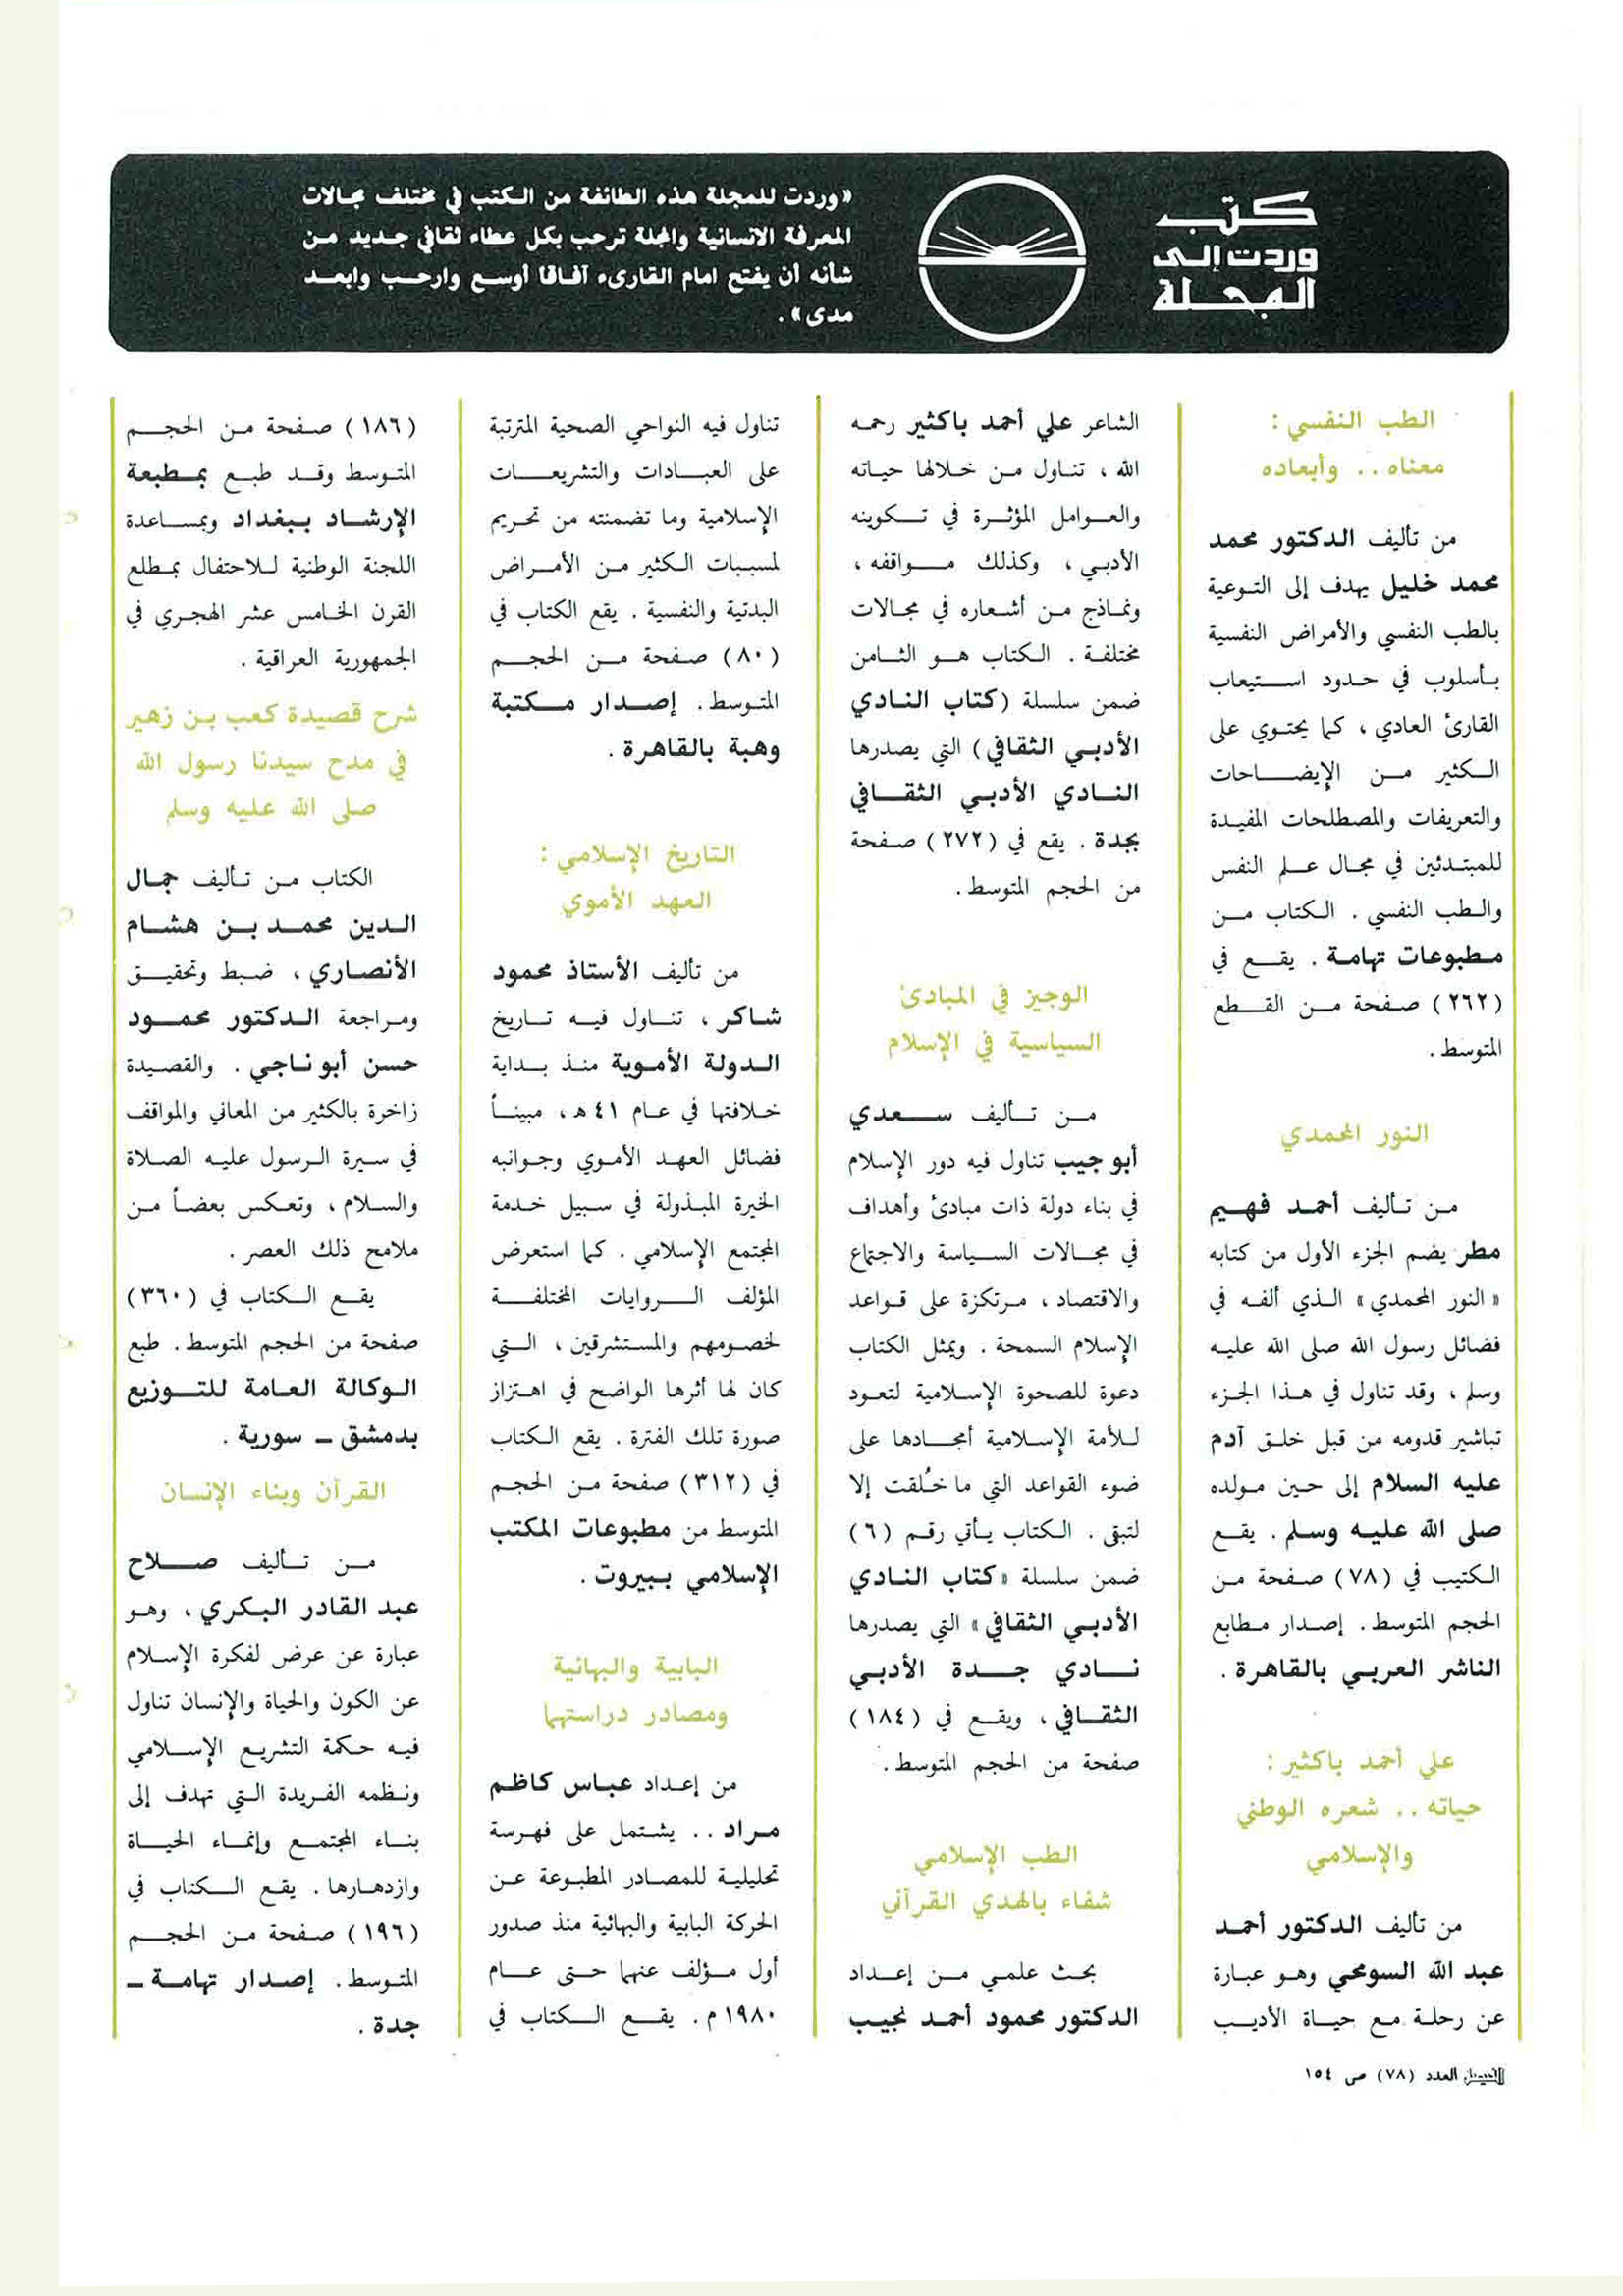 كتب
وردت إلى
المجلة
«وردت للمجلة هذه الطائفة من الكتب في مختلف مجالات
المعرفة الانسانية والمجلة ترحب بكل عطاء ثقافي جديد من
شأنه أن يفتح امام القارىء آفاقا أوسع وارحب وابعد
مدى» .
الطب النفسي :
معناه .. وأبعاده
من تأليف الدكتور محمد
محمد خليل يهدف إلى التوعية
بالطب النفسي والأمراض النفسية
بأسلوب في حدود استيعاب
القارئ العادي ، كما يحتوي على
الكثير من الإيضاحات
والتعريفات والمصطلحات المفيدة
للمبتدئين في مجال علم النفس
والطب النفسي . الكتاب من
مطبوعات تهامة . يقع في
(٢٦٢) صفحة من القطع
المتوسط .
النور المحمدي
من تأليف أحمد فهيم
مطر يضم الجزء الأول من كتابه
«النور المحمدي» الذي ألفه في
فضائل رسول الله صلى الله عليه
وسلم ، وقد تناول في هذا الجزء
تباشير قدومه من قبل خلق آدم
عليه السلام إلى حين مولده
صلى الله عليه وسلم . يقع
الكتيب في (٧٨) صفحة من
الحجم المتوسط . إصدار مطابع
الناشر العربي بالقاهرة .
علي أحمد باكثير :
حياته .. شعره الوطني
والإسلامي
من تأليف الدكتور أحمد
عبد الله السومحي وهو عبارة
عن رحلة مع حياة الأديب
الشاعر علي أحمد باكثير رحمه
الله ، تناول من خلالها حياته
والعوامل المؤثرة في تكوينه
الأدبي ، وكذلك مواقفه ،
ونماذج من أشعاره في مجالات
مختلفة . الكتاب هو الثامن
ضمن سلسلة (كتاب النادي
الأدبي الثقافي) التي يصدرها
النادي الأدبي الثقافي
بجدة . يقع في (٢٧٢) صفحة
من الحجم المتوسط .
الوجيز في المبادئ
السياسية في الإسلام
من تأليف سعدي
أبو جيب تناول فيه دور الإسلام
في بناء دولة ذات مبادئ وأهداف
في مجالات السياسة والاجتماع
والاقتصاد ، مرتكزة على قواعد
الإسلام السمحة . ويمثل الكتاب
دعوة للصحوة الإسلامية لتعود
للأمة الإسلامية أمجادها على
ضوء القواعد التي ما خُلقت إلا
لتبقى . الكتاب يأتي رقم (٦)
ضمن سلسلة «كتاب النادي
الأدبي الثقافي» التي يصدرها
نادي جدة الأدبي
الثقافي ، ويقع في (١٨٤)
صفحة من الحجم المتوسط .
الطب الإسلامي
شفاء بالهدي القرآني
بحث علمي من إعداد
الدكتور محمود أحمد نجيب
تناول فيه النواحي الصحية المترتبة
على العبادات والتشريعات
الإسلامية وما تضمنته من تحريم
لمسببات الكثير من الأمراض
البدتية والنفسية . يقع الكتاب في
(٨٠) صفحة من الحجم
المتوسط . إصدار مكتبة
وهبة بالقاهرة .
التاريخ الإسلامي :
العهد الأموي
من تأليف الأستاذ محمود
شاكر ، تناول فيه تاريخ
الدولة الأموية منذ بداية
خلافتها في عام ٤١ هـ ، مبيناً
فضائل العهد الأموي وجوانبه
الخيرة المبذولة في سبيل خدمة
المجتمع الإسلامي . كما استعرض
المؤلف الروايات المختلفة
لخصومهم والمستشرقين ، التي
كان لها أثرها الواضح في اهتزاز
صورة تلك الفترة . يقع الكتاب
في (٣١٢) صفحة من الحجم
المتوسط من مطبوعات المكتب
الإسلامي ببيروت .
البابية والبهائية
ومصادر دراستهما
من إعداد عباس كاظم
مراد .. يشتمل على فهرسة
تحليلية للمصادر المطبوعة عن
الحركة البابية والبهائية منذ صدور
أول مؤلف عنهما حتى عام
١٩٨٠ م . يقع الكتاب في
(١٨٦) صفحة من الحجم
المتوسط وقد طبع بمطبعة
الإرشاد ببغداد وبمساعدة
اللجنة الوطنية للاحتفال بمطلع
القرن الخامس عشر الهجري في
الجمهورية العراقية .
شرح قصيدة كعب بن زهير
في مدح سيدنا رسول الله
صلى الله عليه وسلم
الكتاب من تأليف جمال
الدين محمد بن هشام
الأنصاري ، ضبط وتحقيق
ومراجعة الدكتور محمود
حسن أبو ناجي . والقصيدة
زاخرة بالكثير من المعاني والمواقف
في سيرة الرسول عليه الصلاة
والسلام ، وتعكس بعضاً من
ملامح ذلك العصر .
يقع الكتاب في (٣٦٠)
صفحة من الحجم المتوسط . طبع
الوكالة العامة للتوزيع
بدمشق – سورية .
القرآن وبناء الإنسان
من تأليف صلاح
عبد القادر البكري ، وهو
عبارة عن عرض لفكرة الإسلام
عن الكون والحياة والإنسان تناول
فيه حكمة التشريع الإسلامي
ونظمه الفريدة التي تهدف إلى
بناء المجتمع وإنماء الحياة
وازدهارها . يقع الكتاب في
(١٩٦) صفحة من الحجم
المتوسط . إصدار تهامة –
جدة .
الفيصل العدد (٧٨) ص ١٥٤